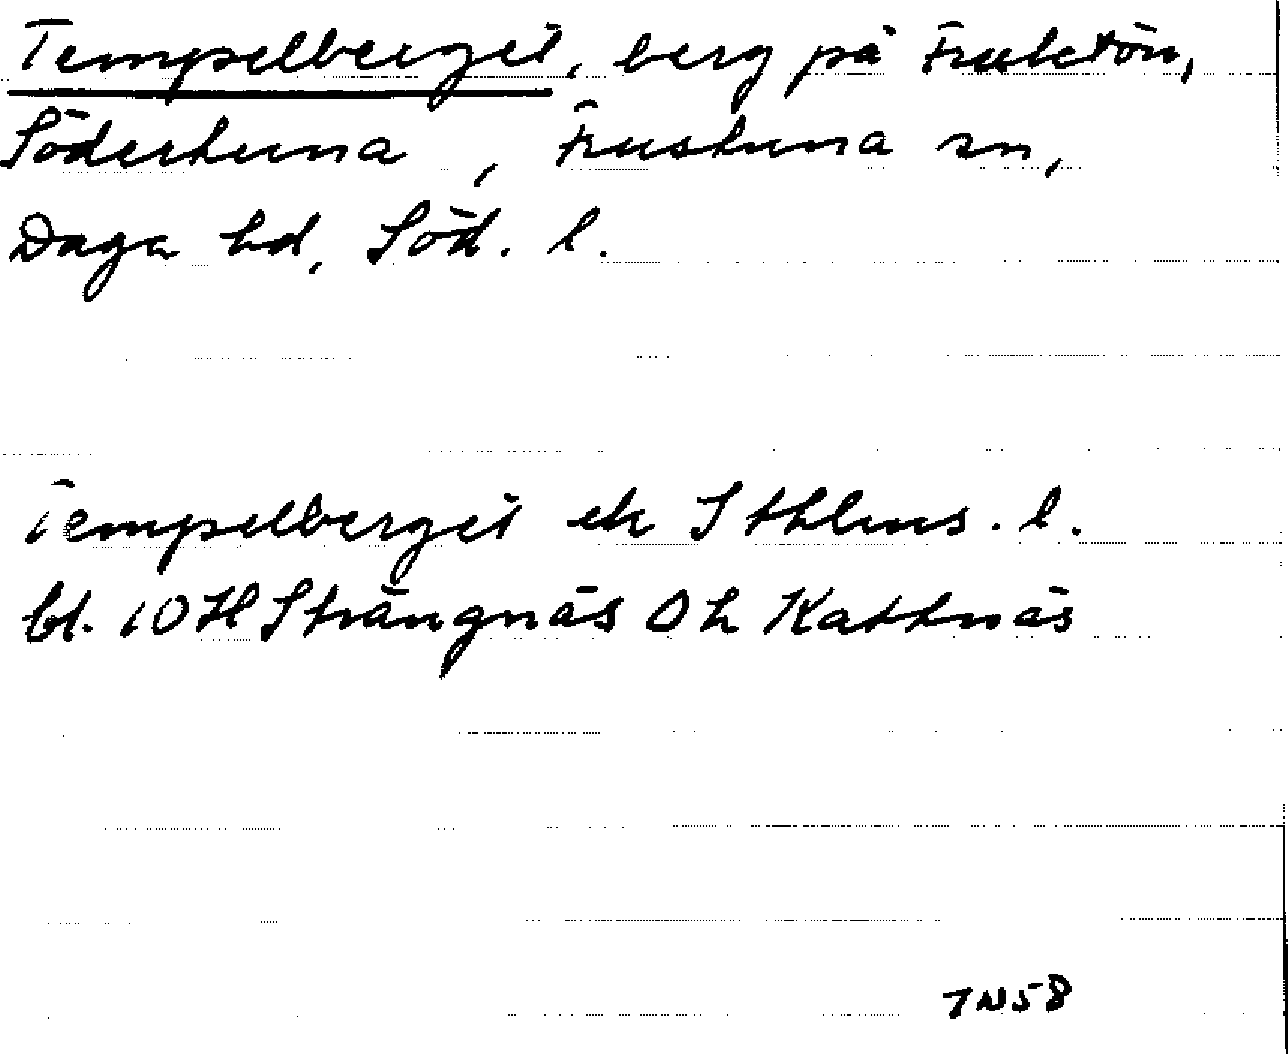 Tempelberget, berg på Fruktön,
Södertuna, Frustuna sn,
Daga hd, Söd. l.
Tempelberget ek Sthlms. l.
bl. 10H Strängnäs 0h Kattnäs
7N58